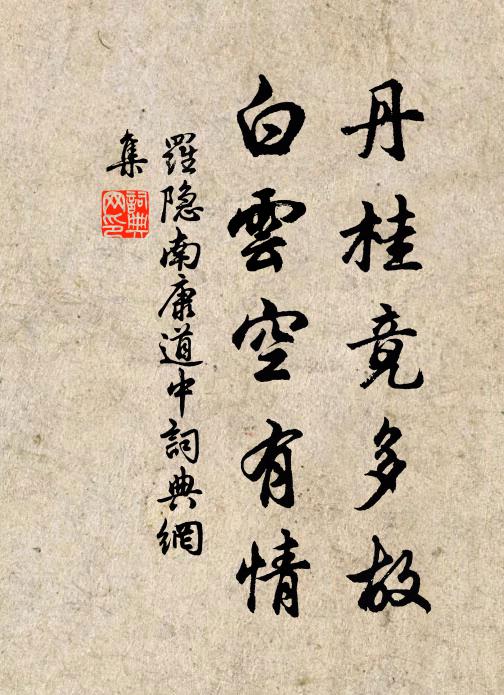 丹桂竟多故
白雲空有情
羅隐南康道中詞典網
集
詞典
网印